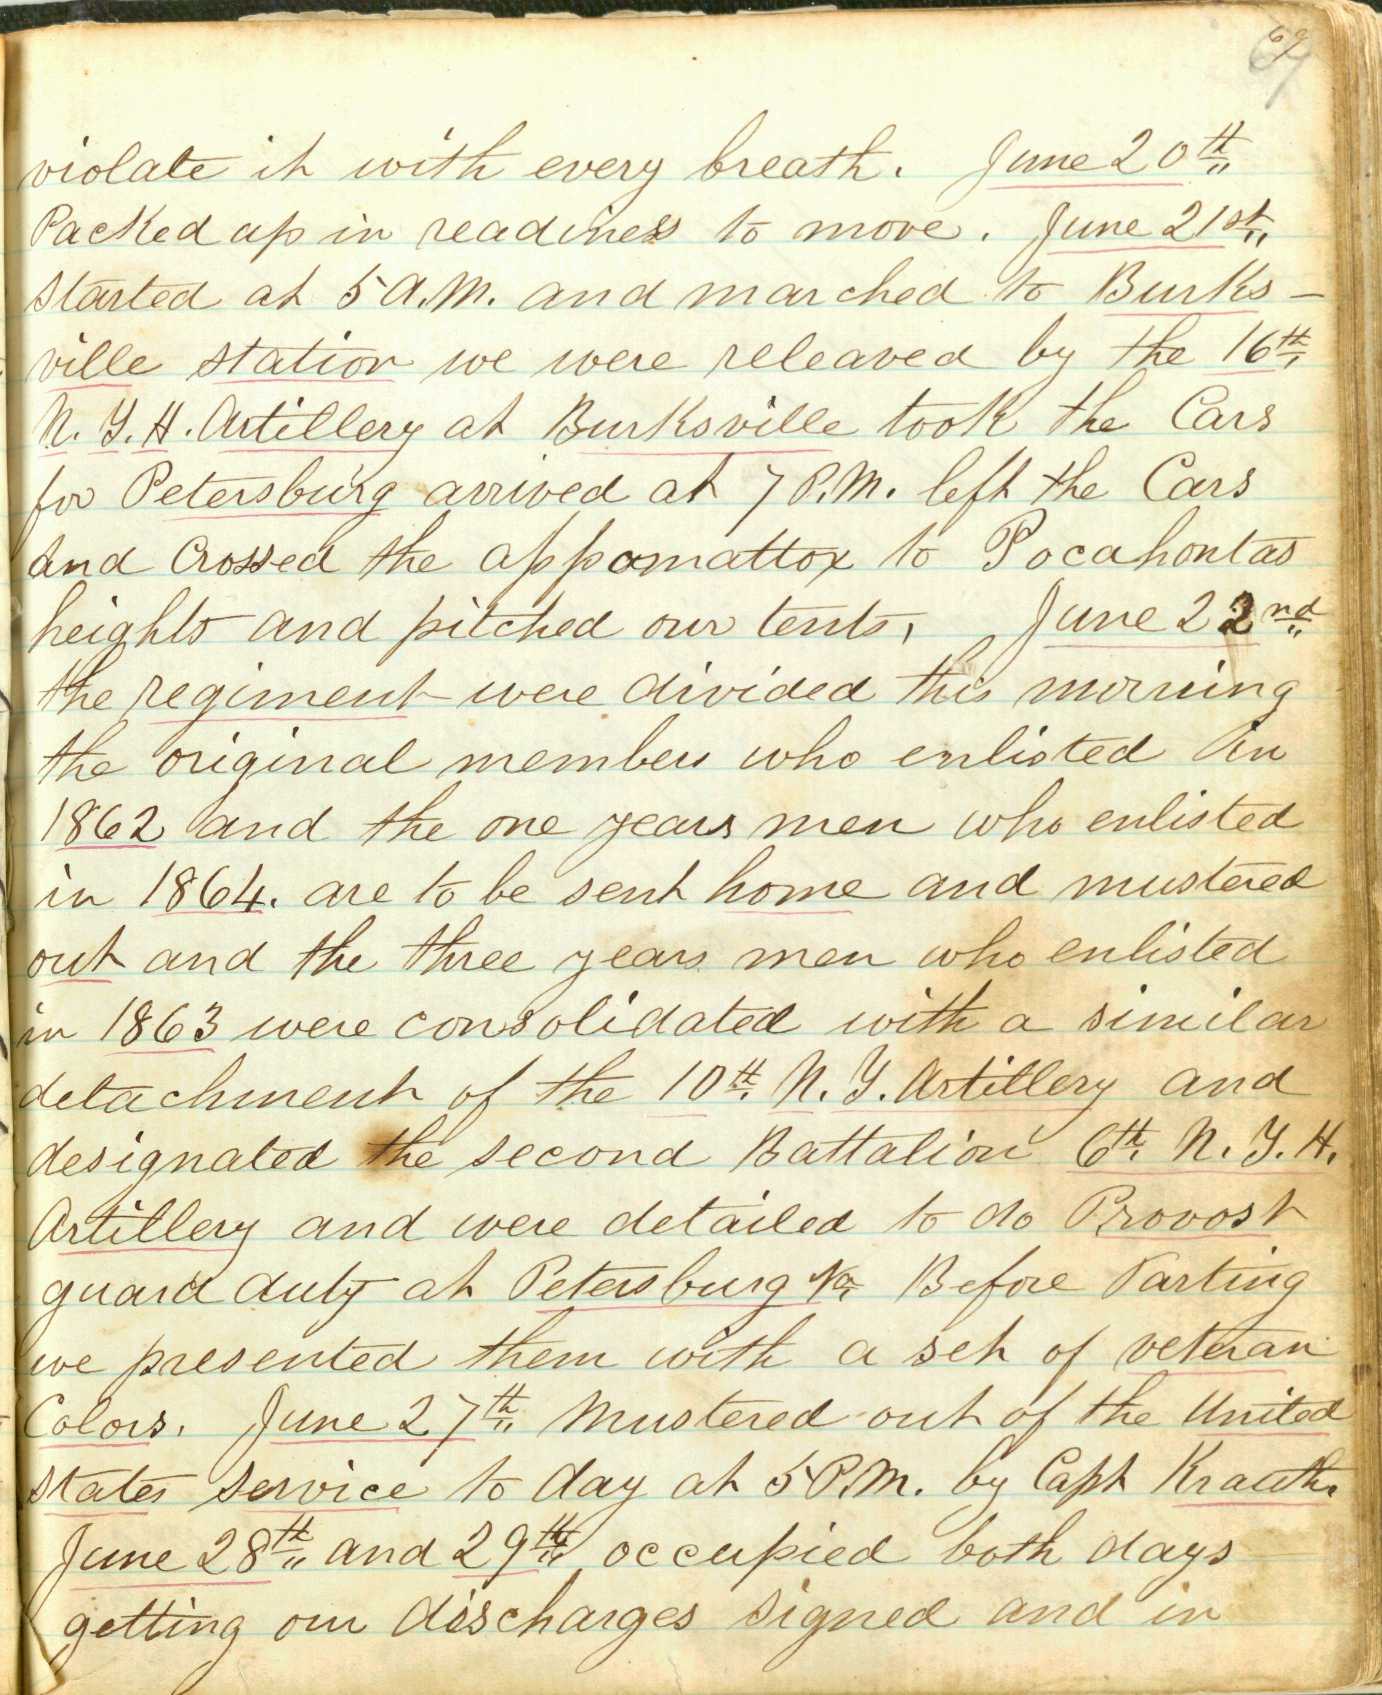 69
violate it with every breath. June 20th
Packed up in readiness to move. June 21st
Started at 5 A.M. and marched to Burks-
ville station we were releaved by the 16th
N. Y. H. Artillery at Burksville took the Cars
for Petersburg arrived at 7 P.M. left the Cars
and Crossed the appomattox to Pocahontas
heights and pitched our tents, June 22nd
the regiment were divided this morning
the original members who enlisted in
1862 and the one years men who enlisted
in 1864. are to be sent home and mustered
out and the three years men who enlisted
in 1863 were consolidated with a similar
detachment of the 10th N. Y. Artillery and
designated the second Battalion 6th N. Y. H.
Artillery and were detailed to do Provost
guard duty at Petersburg Va. Before Parting
we presented them with a set of veteran
Colors. June 27th Mustered out of the United
States Service to day at 5 P.M. by Capt Krauth.
June 28th and 29th occupied both days
getting our discharges signed and in